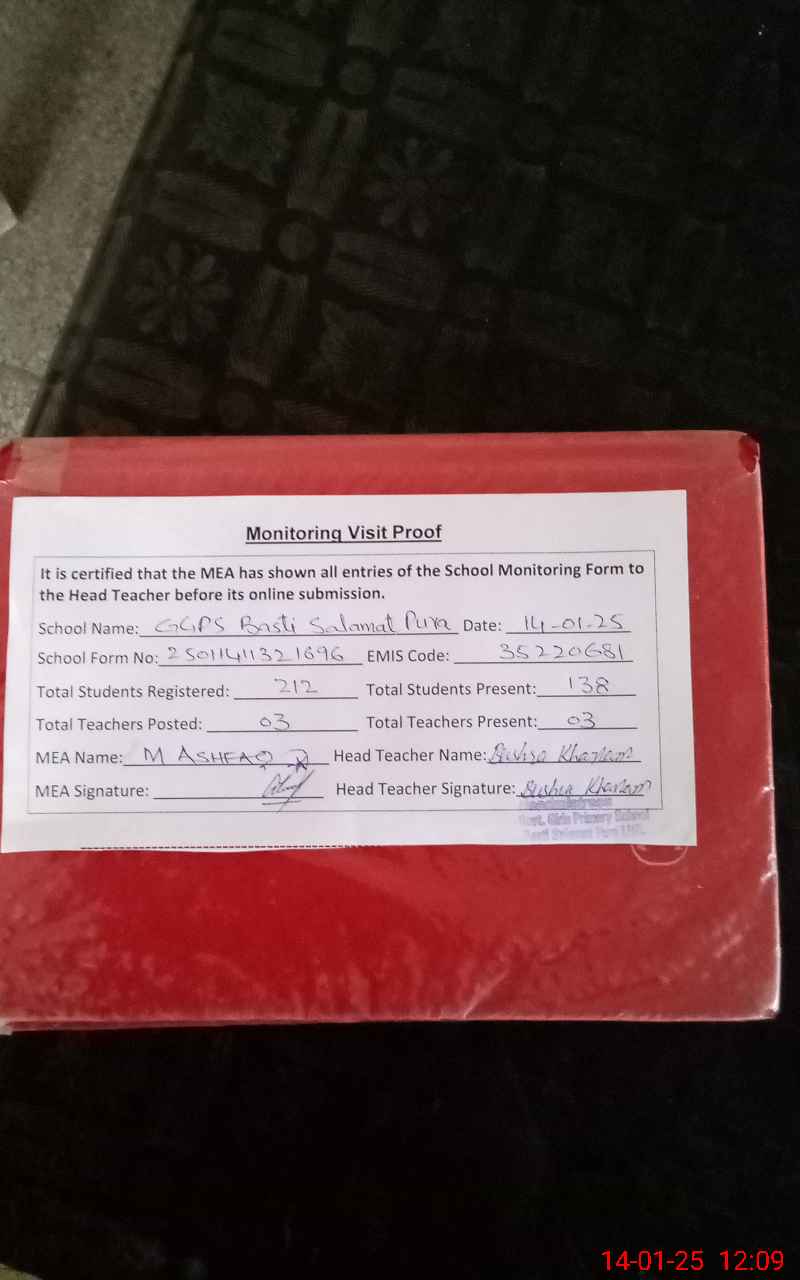 Monitoring Visit Proof
It is certified that the MEA has shown all entries of the School Monitoring Form to
the Head Teacher before its online submission.
School Name: GGPS Basti Salamat Pura Date: 14-01-25
School Form No: 25011411321696 EMIS Code: 35220681
Total Students Registered: 212 Total Students Present: 138
Total Teachers Posted: 03 Total Teachers Present: 03
MEA Name: M ASHFAQ Head Teacher Name: Bushra Khanam
MEA Signature: Head Teacher Signature: Bushra Khanam
Headmistress
Govt. Girls Primary School
Basti Salamat Pura
14-01-25 12:09